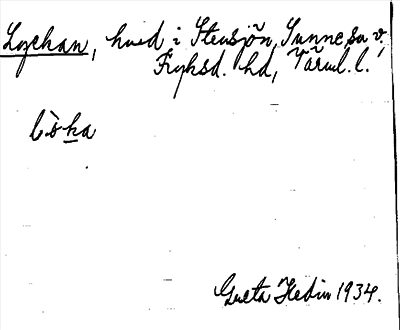 Lyckan, hvud i Stensjön, Sunne sn v,
Fryksd. hd, Värml. l.
lò̀ka
Greta Hedin 1934.